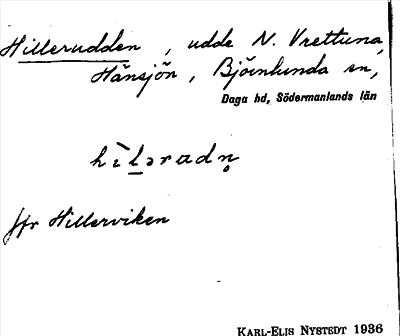 Hillerudden, udde N. Vrettuna,
Hänsjön, Björnlunda sn,
Daga hd, Södermanlands län
hìləradn̥
jfr Hillerviken
KARL-ELIS NYSTEDT 1936